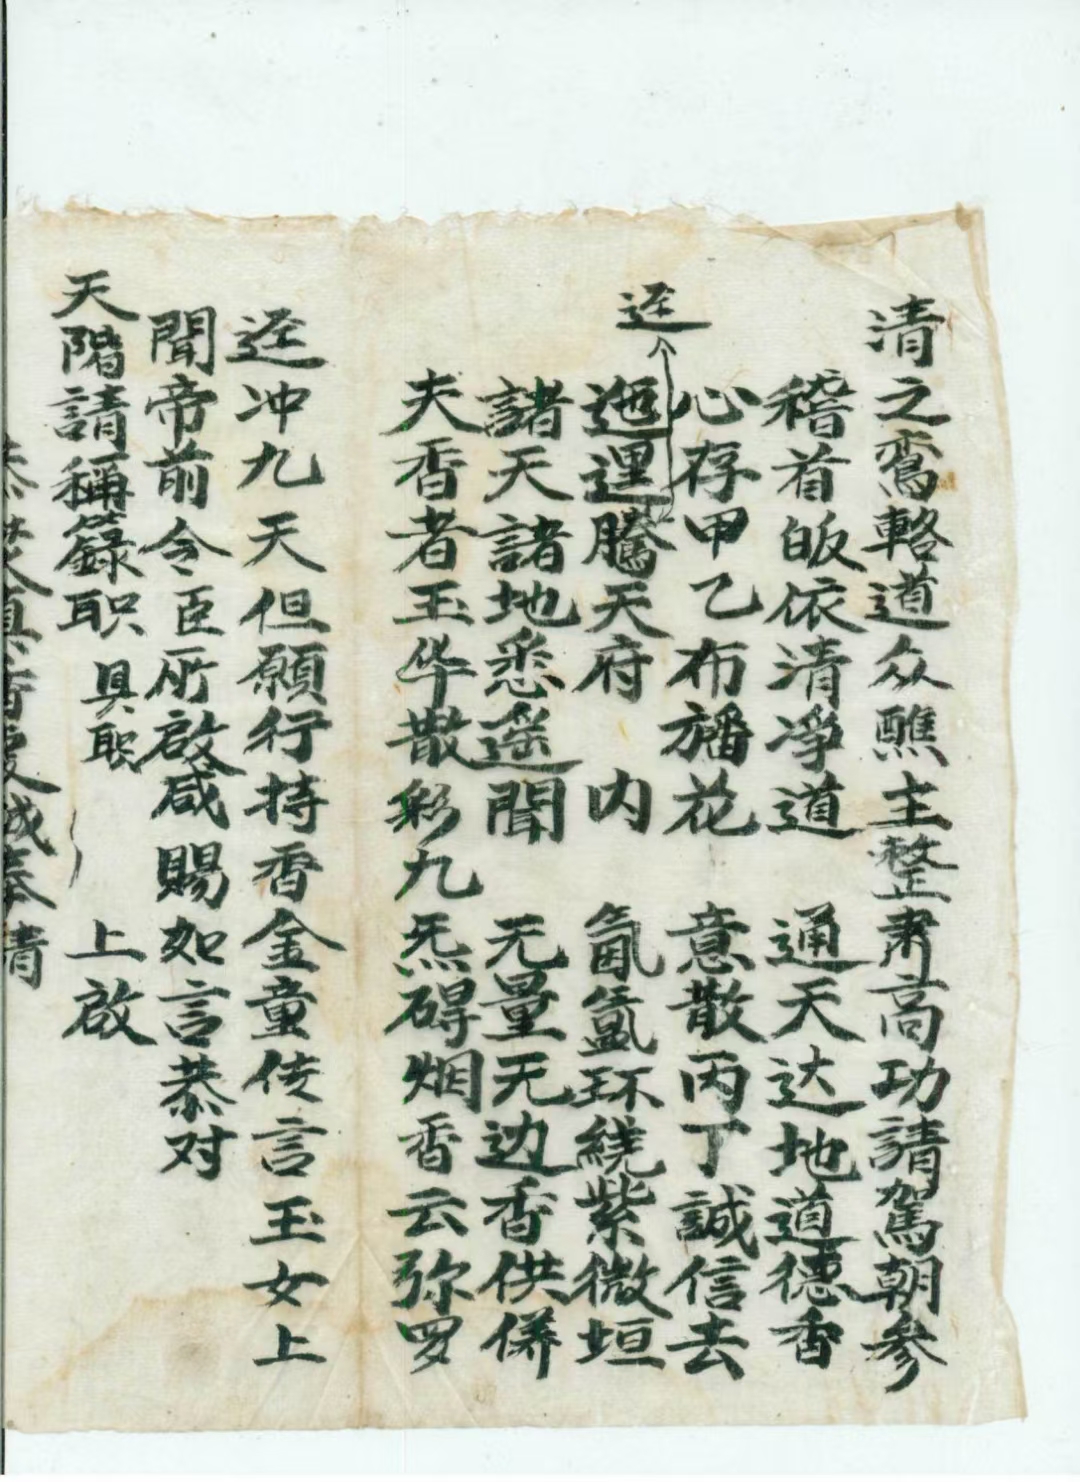 清之鸾輅道众醮主整肃高功請駕朝参
稽首皈依清凈道 通天达地道德香
心存甲乙布旛花 意散丙丁誠信去
迳
迤逦騰天府内 氤氲环繞紫微垣
諸天諸地悉遥聞 无量无边香供俻
夫香者玉华散彩九炁碍烟香云弥罗
迳冲九天但願行持香金童传言玉女上
聞帝前令臣所啟咸賜如言恭对
天階請稱籙职 具职 上啟